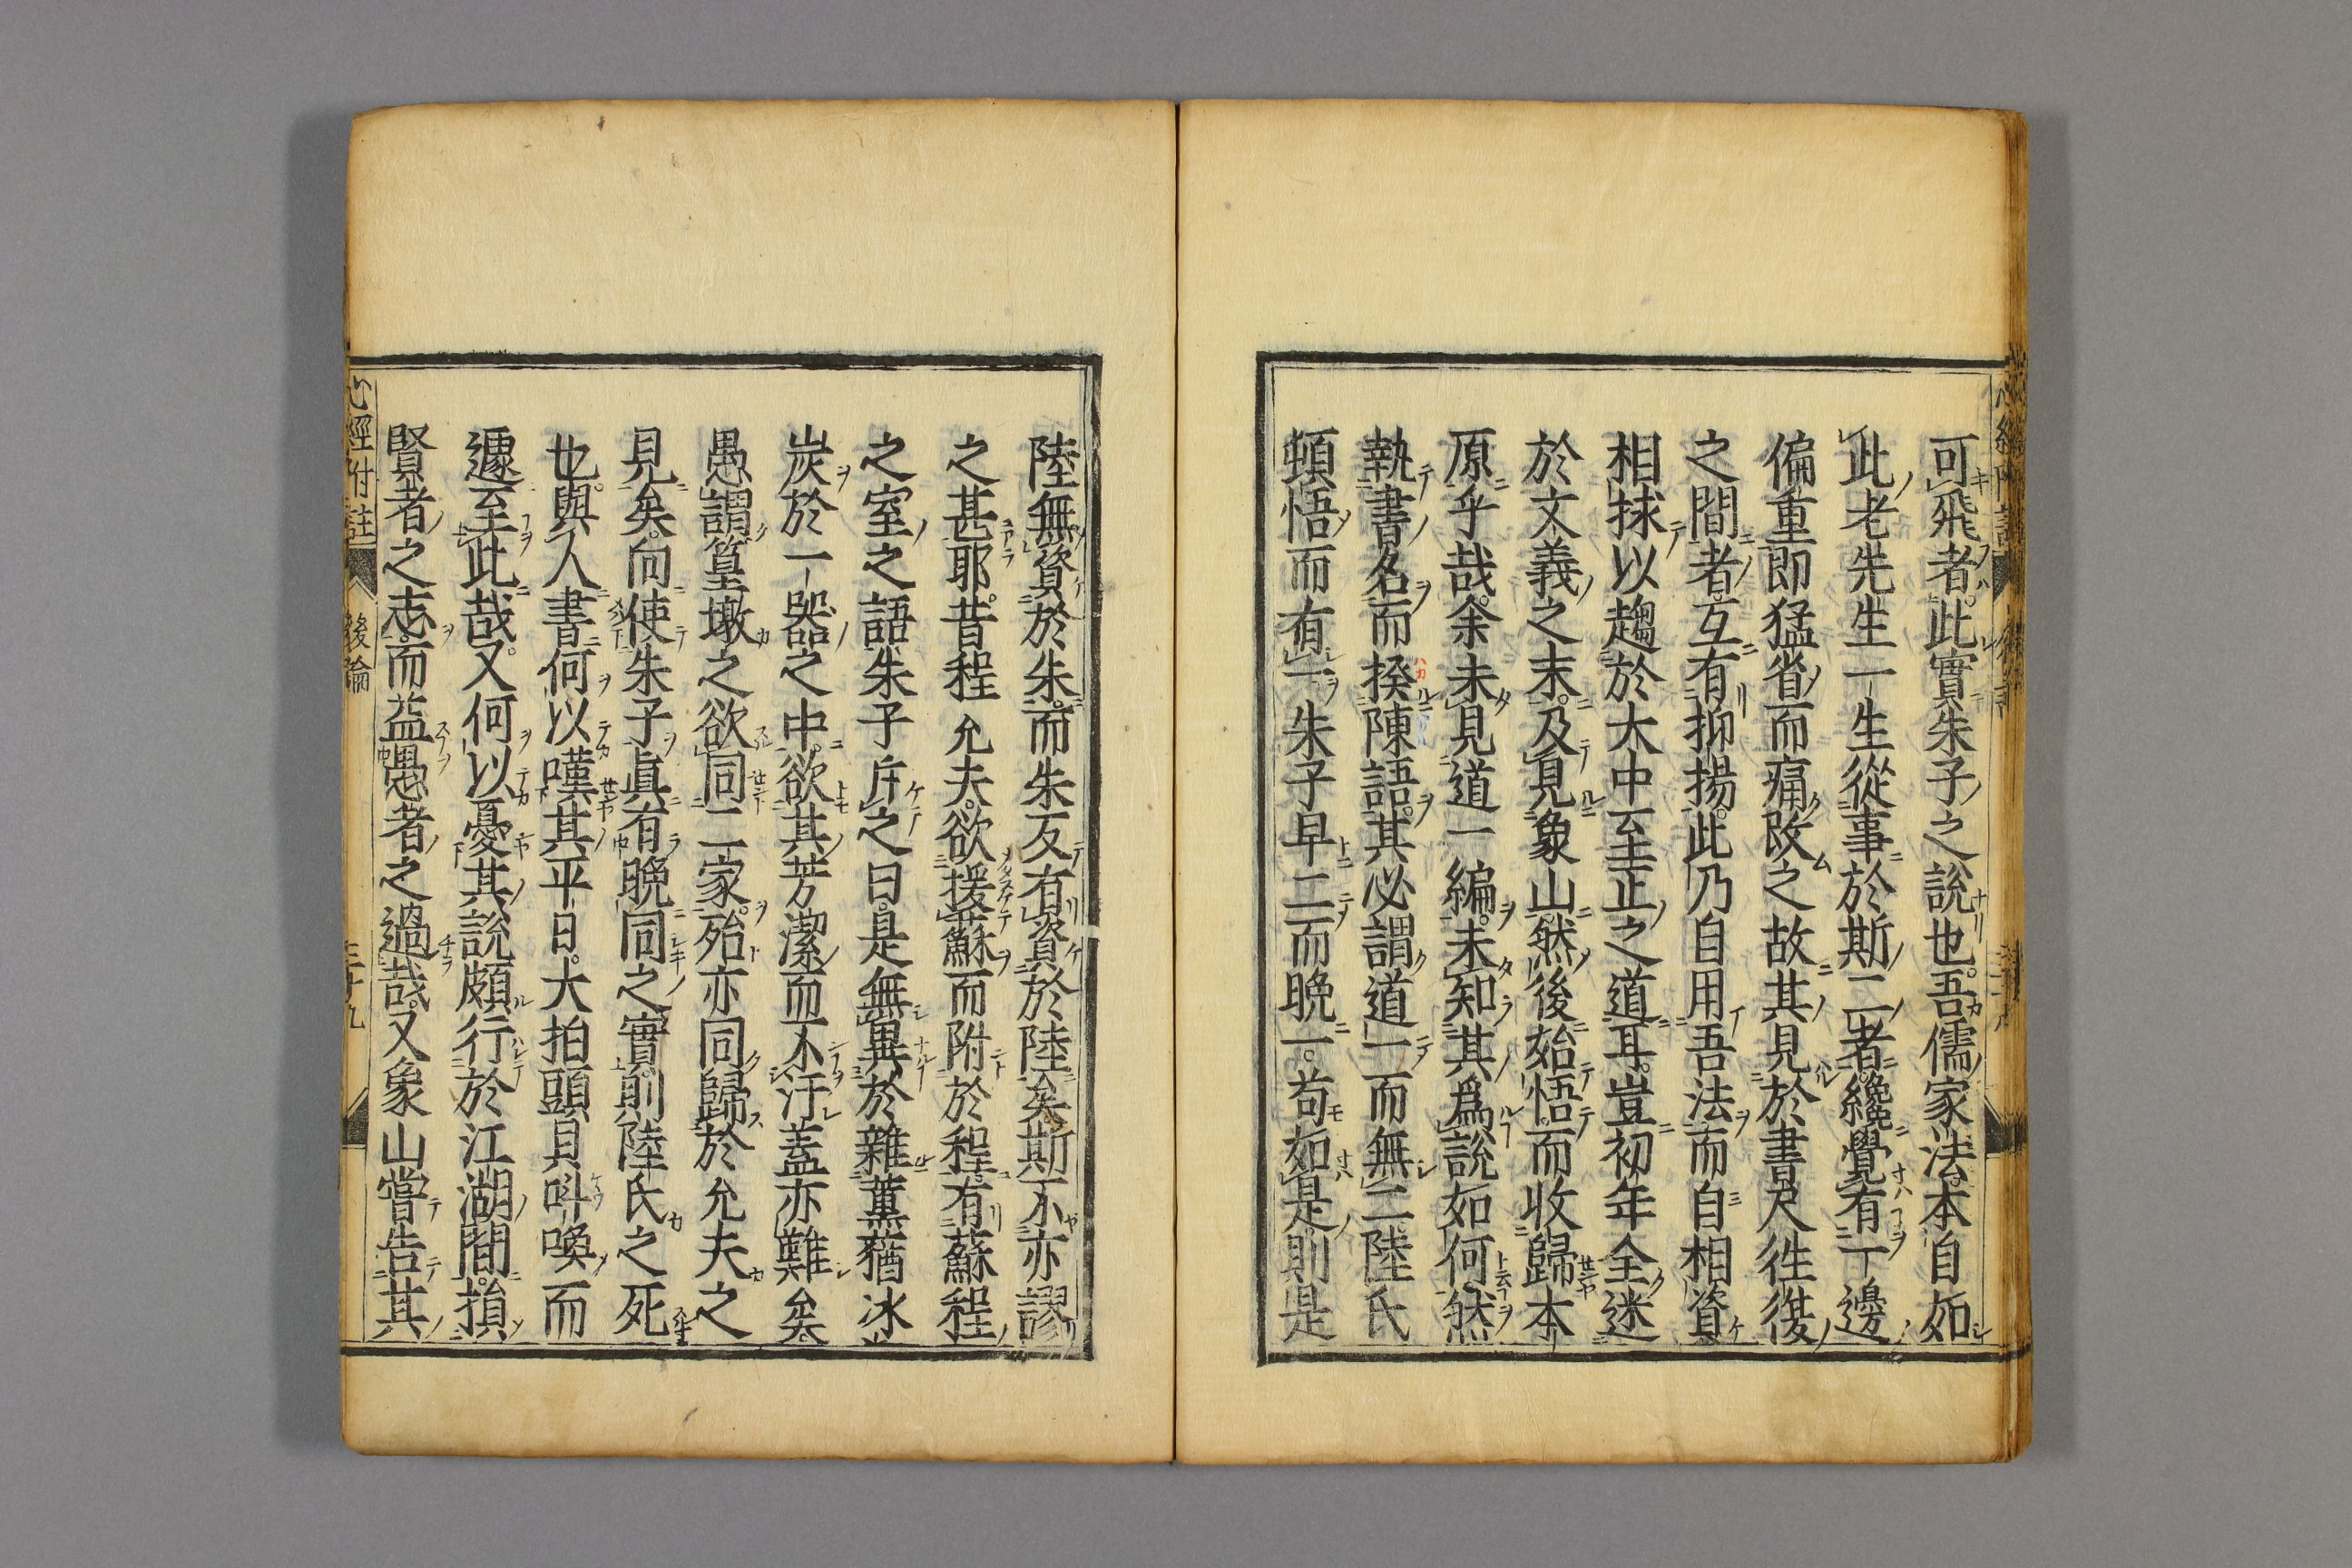 可飛者。此實朱子之說也。吾儒家法。本自如
此老先生一生從事於斯二者。纔覺有一邊
偏重即猛省而痛改之故其見於書尺徃復
之間者。互有抑揚。此乃自用吾法而自相資
相捄以趨於大中至正之道耳。豈初年全迷
於文義之末。及見象山然後始悟而收歸本
原乎哉。余未見道一編。未知其爲說如何。然
執書名而揆陳語。其必謂道一而無二。陸氏
頓悟而有一。朱子早二而晩一。苟如是則是
陸無資於朱。而朱反有資於陸矣斯不亦謬
之甚耶。昔程允夫。欲援蘇而附於程。有蘇程
之室之語。朱子斥之曰。是無異於雜薰蕕冰
炭於一器之中。欲其芳潔而不汙。蓋亦難矣。
愚謂篁墩之欲同二家。殆亦同歸於允夫之
見矣。向使朱子眞有晩同之實。則陸氏之死
也。與人書何以嘆其平日。大拍頭。胡叫喚而
遽至此哉。又何以憂其說頗行於江湖間。損
賢者之志。而益愚者之過哉。又象山嘗告其
心經附註
後論
三十九